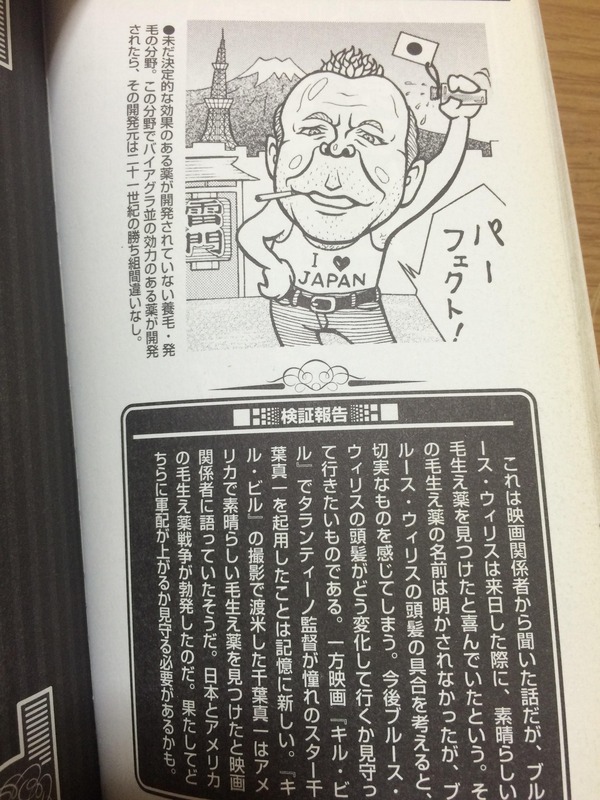 ●未だ決定的な効果のある薬が開発されていない養毛・発
毛の分野。この分野でバイアグラ並の効力のある薬が開発
されたら、その開発元は二十一世紀の勝ち組間違いなし。
雷門
I ♥
JAPAN
パー
フェクト!
検証報告
これは映画関係者から聞いた話だが、ブル
ース・ウィリスは来日した際に、素晴らしい
毛生え薬を見つけたと喜んでいたという。そ
の毛生え薬の名前は明かされなかったが、ブ
ルース・ウィリスの頭髪の具合を考えると、
切実なものを感じてしまう。今後ブルース・
ウィリスの頭髪がどう変化して行くか見守っ
て行きたいものである。一方映画『キル・ビ
ル』でタランティーノ監督が憧れのスター千
葉真一を起用したことは記憶に新しい。『キ
ル・ビル』の撮影で渡米した千葉真一はアメ
リカで素晴らしい毛生え薬を見つけたと映画
関係者に語っていたそうだ。日本とアメリカ
の毛生え薬戦争が勃発したのだ。果たしてど
ちらに軍配が上がるか見守る必要があるかも。